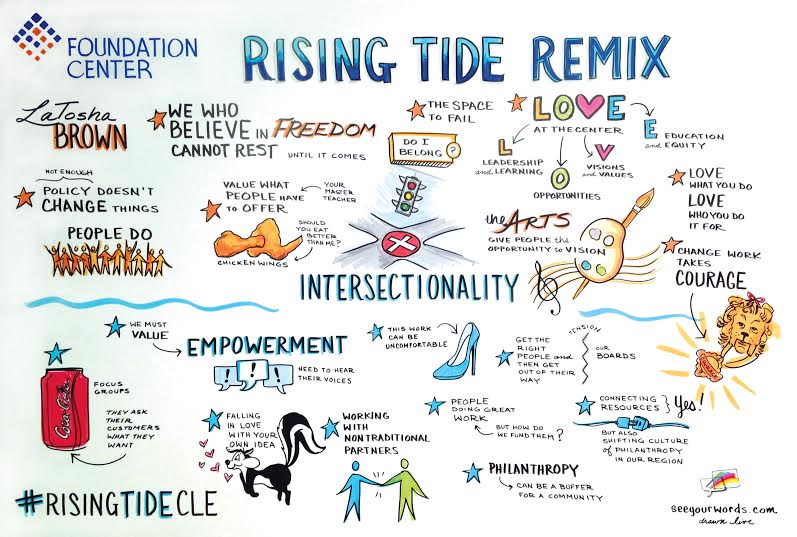 FOUNDATION
CENTER
RISING TIDE REMIX
LaTosha
BROWN
WE WHO
BELIEVE IN FREEDOM
CANNOT REST UNTIL IT COMES
THE SPACE
TO FAIL
DO I
BELONG?
LOVE
AT THE CENTER
L
LEADERSHIP
and LEARNING
O
OPPORTUNITIES
V
VISIONS
and VALUES
E
EDUCATION
and EQUITY
NOT ENOUGH
POLICY DOESN'T
CHANGE THINGS
PEOPLE DO
VALUE WHAT
PEOPLE HAVE
TO OFFER
YOUR
MASTER
TEACHER
SHOULD
YOU EAT
BETTER
THAN ME?
CHICKEN WINGS
INTERSECTIONALITY
the ARTS
GIVE PEOPLE the
OPPORTUNITY to VISION
LOVE
WHAT YOU DO
LOVE
WHO YOU DO
IT FOR
CHANGE WORK
TAKES
COURAGE
WE MUST
VALUE
EMPOWERMENT
! ! !
NEED TO HEAR
THEIR VOICES
THIS WORK
CAN BE
UNCOMFORTABLE
GET THE
RIGHT
PEOPLE and
THEN GET
OUT OF THEIR
WAY
TENSION
OUR
BOARDS
Coca-Cola
FOCUS
GROUPS
THEY ASK
THEIR
CUSTOMERS
WHAT THEY
WANT
FALLING
IN LOVE
WITH YOUR
OWN IDEA
WORKING
WITH
NONTRADITIONAL
PARTNERS
PEOPLE
DOING GREAT
WORK
BUT HOW DO
WE FUND THEM?
CONNECTING
RESOURCES } Yes!
BUT ALSO
SHIFTING CULTURE
of PHILANTHROPY
IN OUR REGION
PHILANTHROPY
CAN BE A BUFFER
FOR A COMMUNITY
#RISINGTIDECLE
seeyourwords.com
drawn live